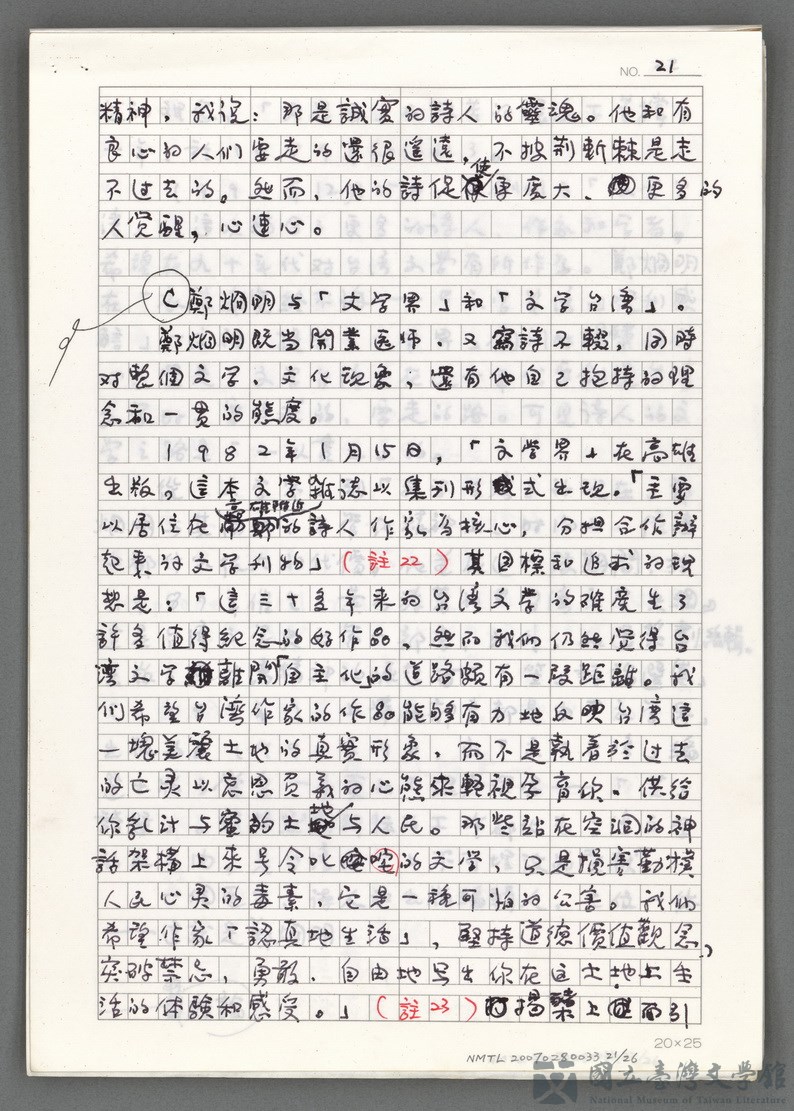 NO. 21
精神。我说:那是誠實的詩人的靈魂。他和有
良心的人们要走的還很遙遠,不披荆斬棘是走
不过去的。然而,他的詩促使更廣大、更多的
人觉醒,心連心。
C鄭烱明与「文学界」和「文学台湾」。
鄭烱明既当開業医师,又寫詩不輟,同時
对整個文学、文化現象,還有他自己抱持的理
念和一貫的態度。
1982年1月15日,「文学界」在高雄
出版。這本文学雜誌以集刊形式出现。「主要
以居住在高雄附近的詩人作家为核心,分担合作辦
起來的文学刊物」(註22)其目標和追求的理
想是:「這三十多年来的台湾文学的確產生了
許多值得紀念的好作品,然而我们仍然觉得台
湾文学離開「自主化」的道路頗有一段距離。我
们希望台灣作家的作品能够有力地反映台湾這
一塊美麗土地的真實形象,而不是執着於过去
的亡灵以忘恩负義的心態來輕視孕育你、供给
你乳汁与蜜的土地与人民。那些站在空洞的神
話架構上來号令叱咤的文学,只是損害勤樸
人民心灵的毒素,它是一種可怕的公害。我们
希望作家「認真地生活」,堅持道德價值觀念,
突破禁忌,勇敢、自由地写出你在這土地上生
活的体驗和感受。」(註23)揭櫫上而引
20×25
NMTL 20070280033 21/26
國立臺灣文學館
National Museum of Taiwan Literature